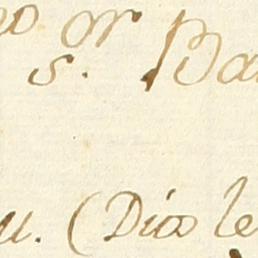 or
s. Ba
u. (Dico le